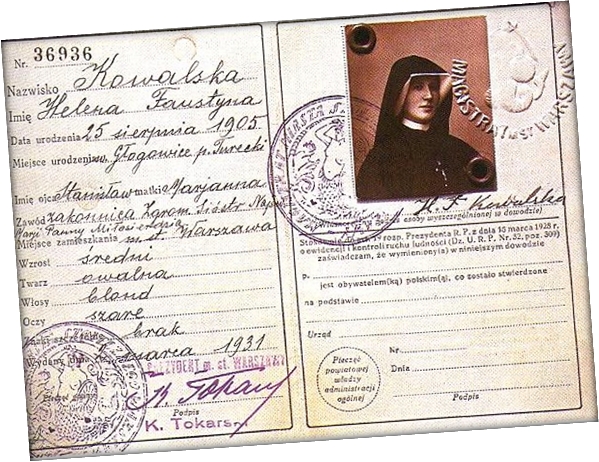 Nr. 36936
Nazwisko Kowalska
Imię Helena Faustyna
Data urodzenia 25 sierpnia 1905
Miejsce urodzenia w. Głogowice p. Turecki
Imię ojca Stanisław matki Marjanna
Zawód zakonnica Zgrom. Sióstr Najśw
Marji Panny Miłosierdzia
Miejsce zamieszkania m. st. Warszawa
Wzrost średni
Twarz owalna
Włosy blond
Oczy szare
brak
Wydany dnia marca 1931
PREZYDENT m. st. WARSZAWY
Podpis
K. Tokars
MAGISTRAT m. st. WARSZAWY
H. F. Kowalska
osoby wyszczególnionej w dowodzie)
rozp. Prezydenta R. P. z dnia 15 marca 1928 r.
o ewidencji i kontroli ruchu ludności (Dz. U. R. P. Nr. 32, poz. 309)
zaświadczam, że wymieniony(a) w niniejszym dowodzie
P.
jest obywatelem(ką) polskim(ą), co zostało stwierdzone
na podstawie
Urząd
Nr.
Data
Pieczęć
powiatowej
władzy
administracji
ogólnej
Podpis